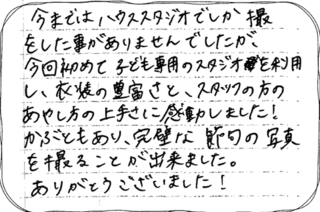 今まではハウススタジオでしか撮
をした事がありませんでしたが、
今回初めて子ども専用のスタジオを利用
し、衣装の豊富さと、スタッフの方の
あやし方の上手さに感動しました！
かぶともあり、完璧な節句の写真
を撮ることが出来ました。
ありがとうございました！